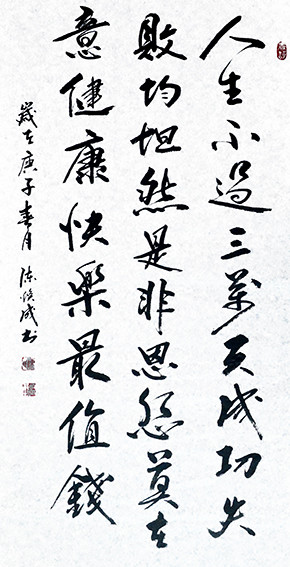 人生不過三萬天成功失
敗均坦然是非恩怨莫在
意健康快樂最值錢
歲在庚子春月 陈成书